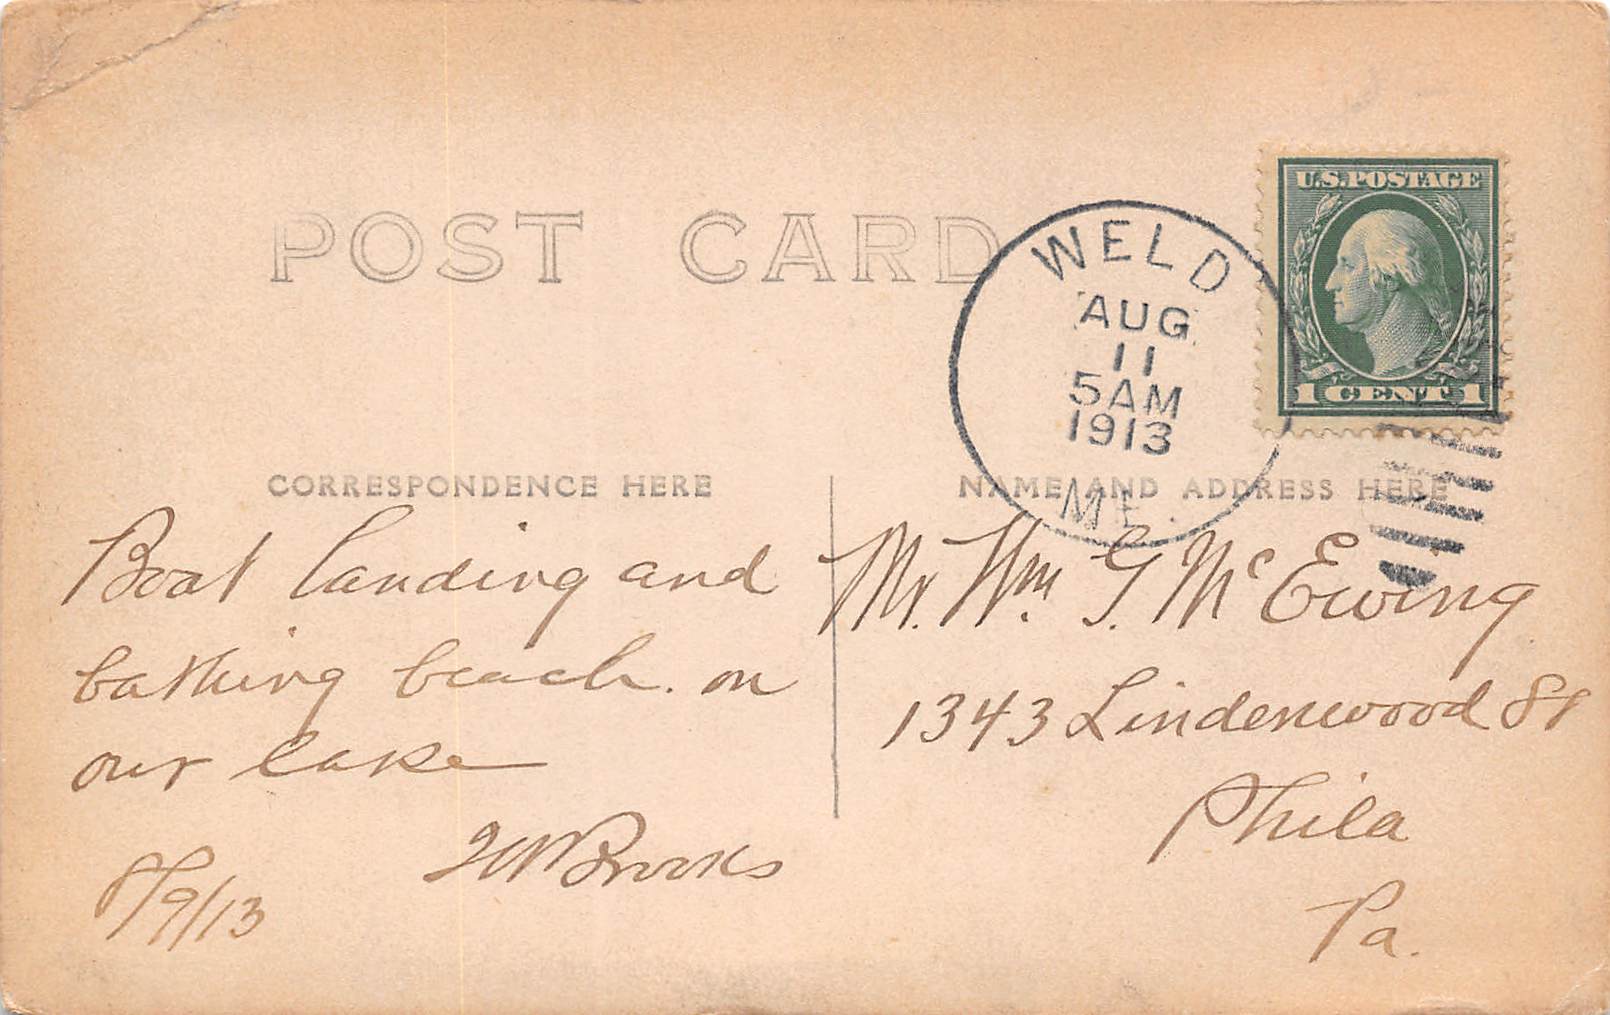 POST CARD
WELD
AUG
11
5AM
1913
ME.
U.S. POSTAGE
1 CENT 1
CORRESPONDENCE HERE
NAME AND ADDRESS HERE
Boat landing and
bathing beach. on
our lake
Brooks
8/9/13
Mr. Wm. G. McEwing
1343 Lindenwood St
Phila
Pa.